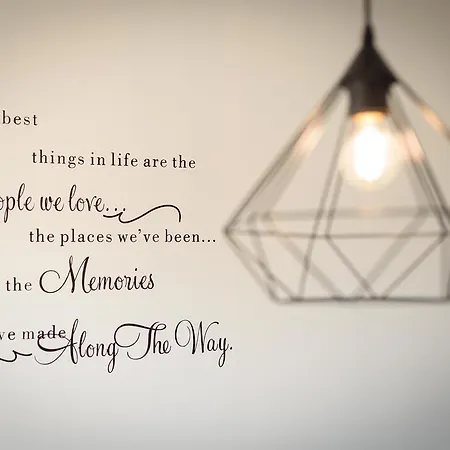 best
things in life are the
ople we love...
the places we've been...
the Memories
ve made Along The Way.